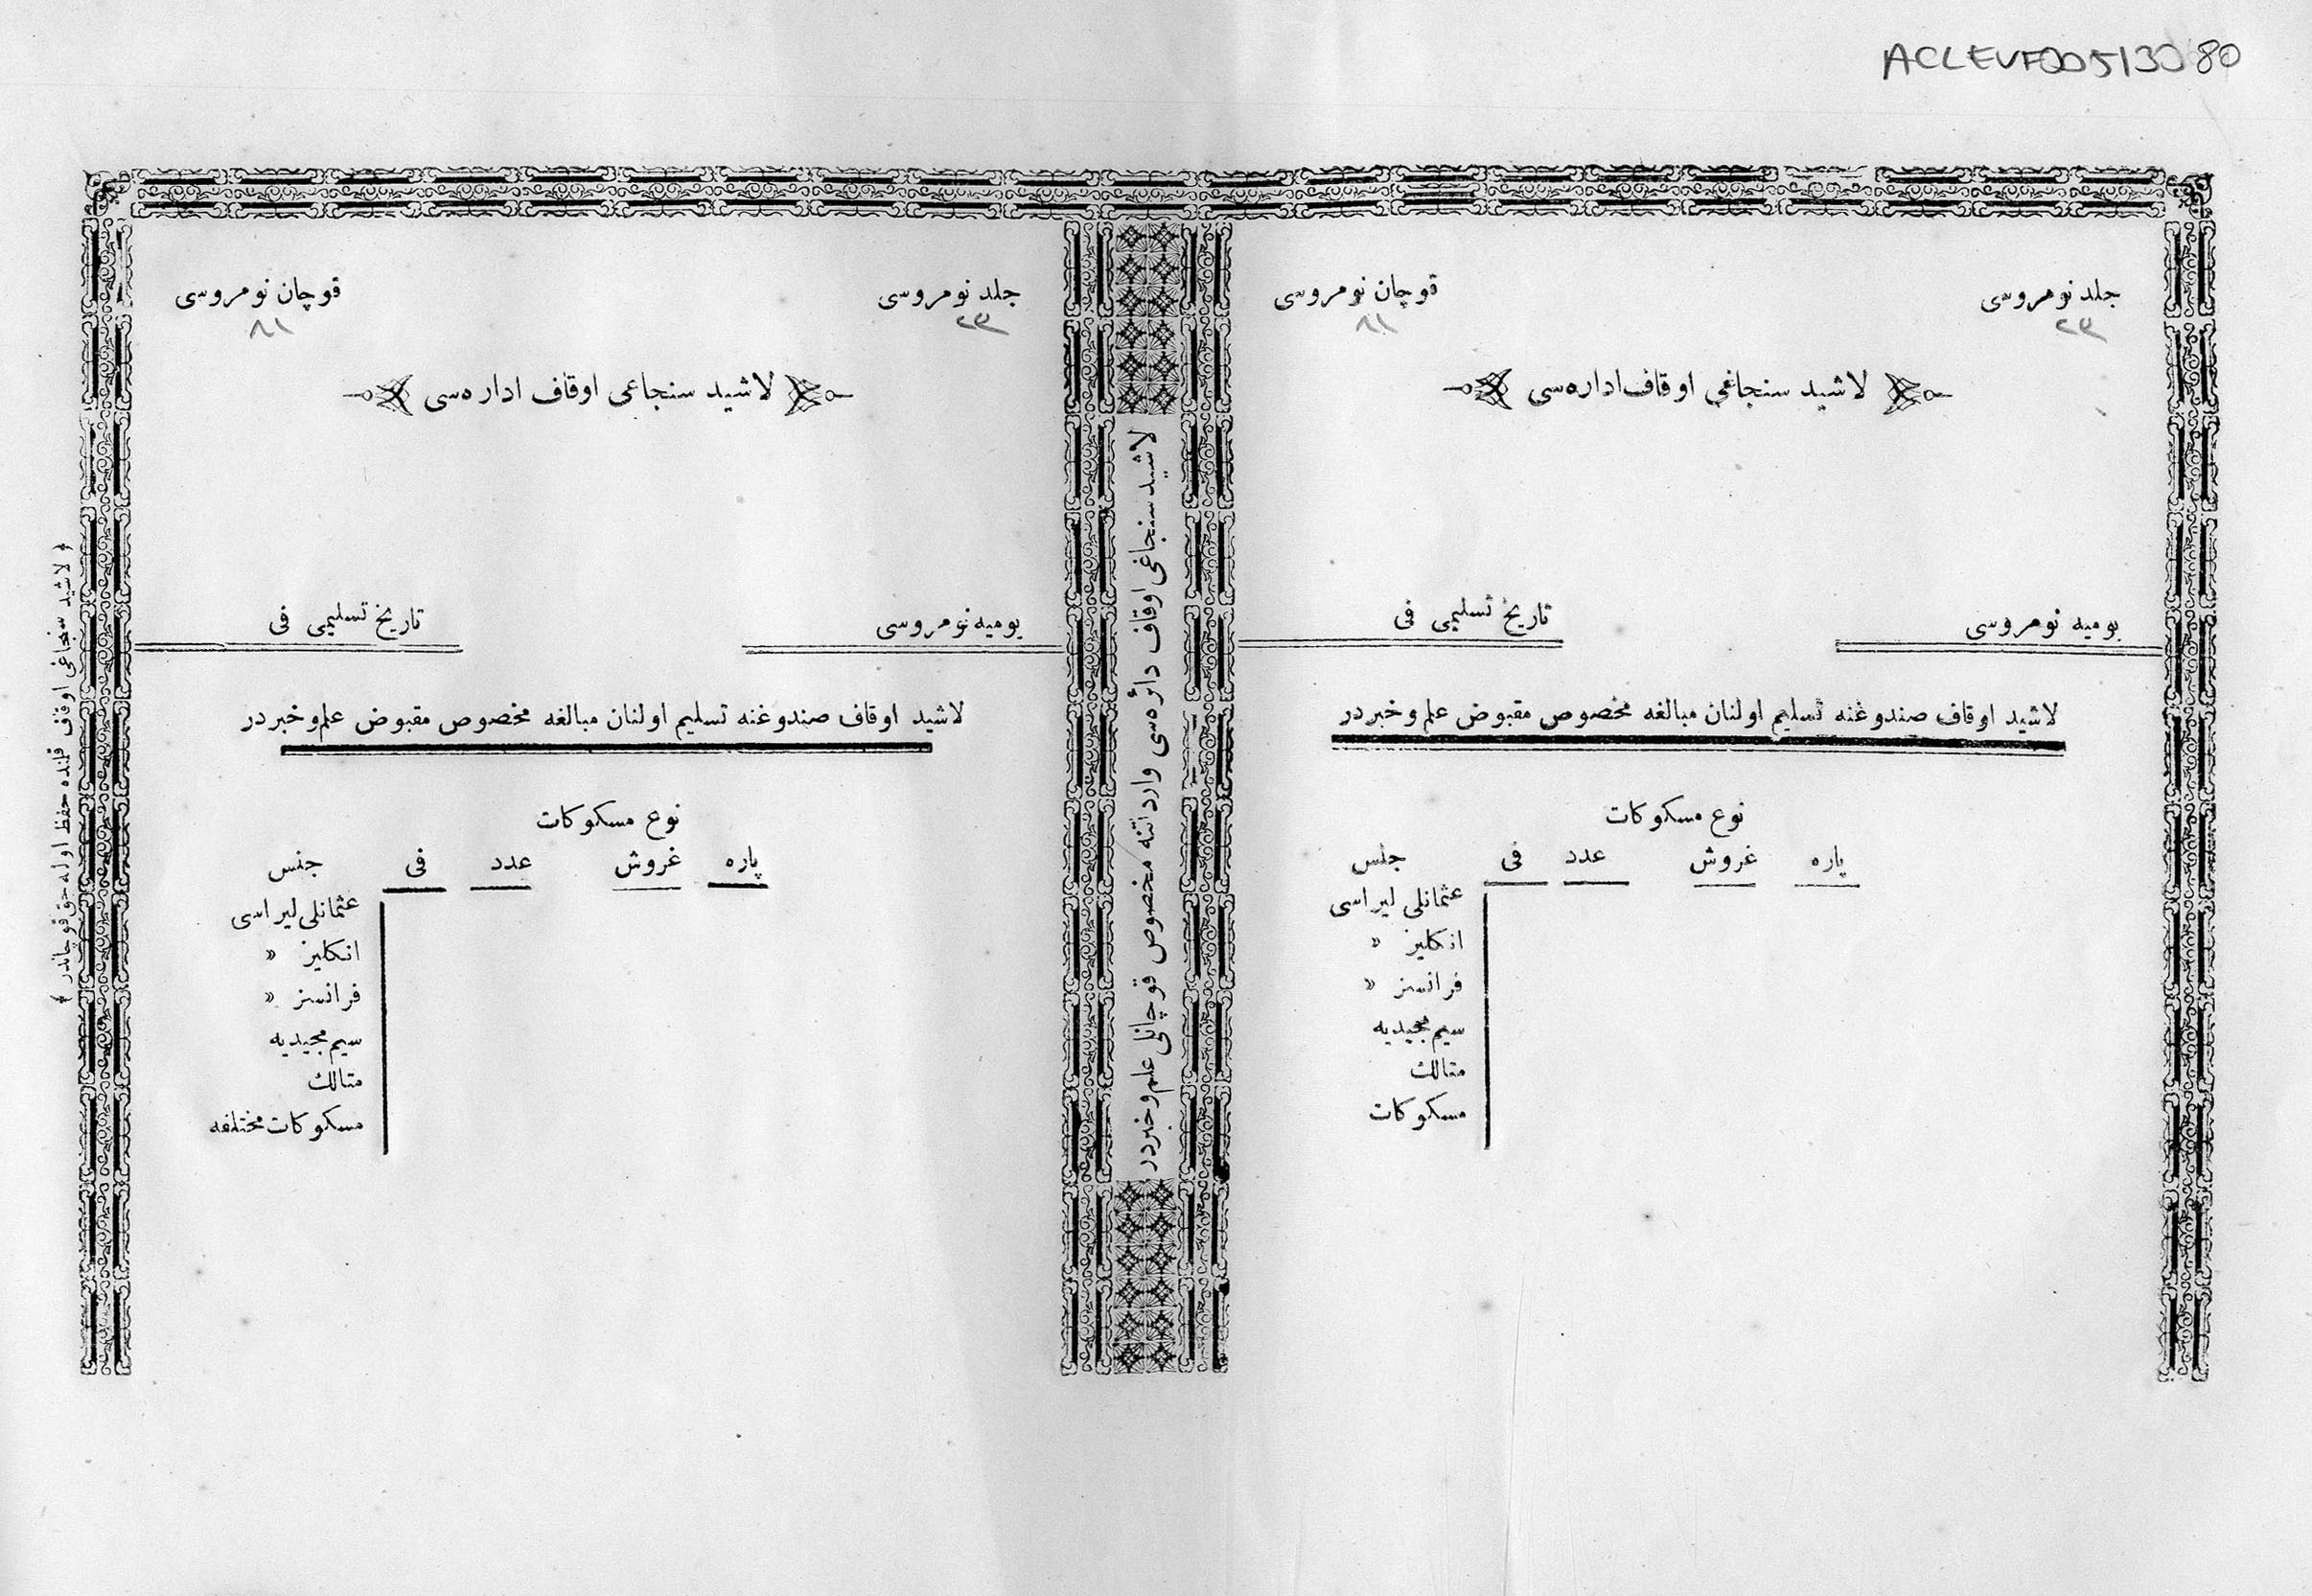 ACLEVF00513080
جلد نومروسی
٢٣
قوچان نومروسی
٨١
لاشید سنجاغی اوقاف اداره‌سی
یومیه نومروسی
تاریخ تسلیمی فی
لاشید اوقاف صندوغنه تسلیم اولنان مبالغه مخصوص مقبوض علم و خبردر
نوع مسكوكات
پاره غروش عدد فی جنس
عثمانلی لیراسی
انكلیز »
فرانسز »
سیم مجیدیه
متالك
مسكوكات
لاشید سنجاغی اوقاف دائره‌سی وارداتنه مخصوص قوچانلی علم و خبردر
جلد نومروسی
٢٣
قوچان نومروسی
٨١
لاشید سنجاغی اوقاف اداره‌سی
یومیه نومروسی
تاریخ تسلیمی فی
لاشید اوقاف صندوغنه تسلیم اولنان مبالغه مخصوص مقبوض علم و خبردر
نوع مسكوكات
پاره غروش عدد فی جنس
عثمانلی لیراسی
انكلیز »
فرانسز »
سیم مجیدیه
متالك
مسكوكات مختلفه
﴿ لاشید سنجاغی اوقاف قلنده حفظ اوله‌حق قوچاندر ﴾